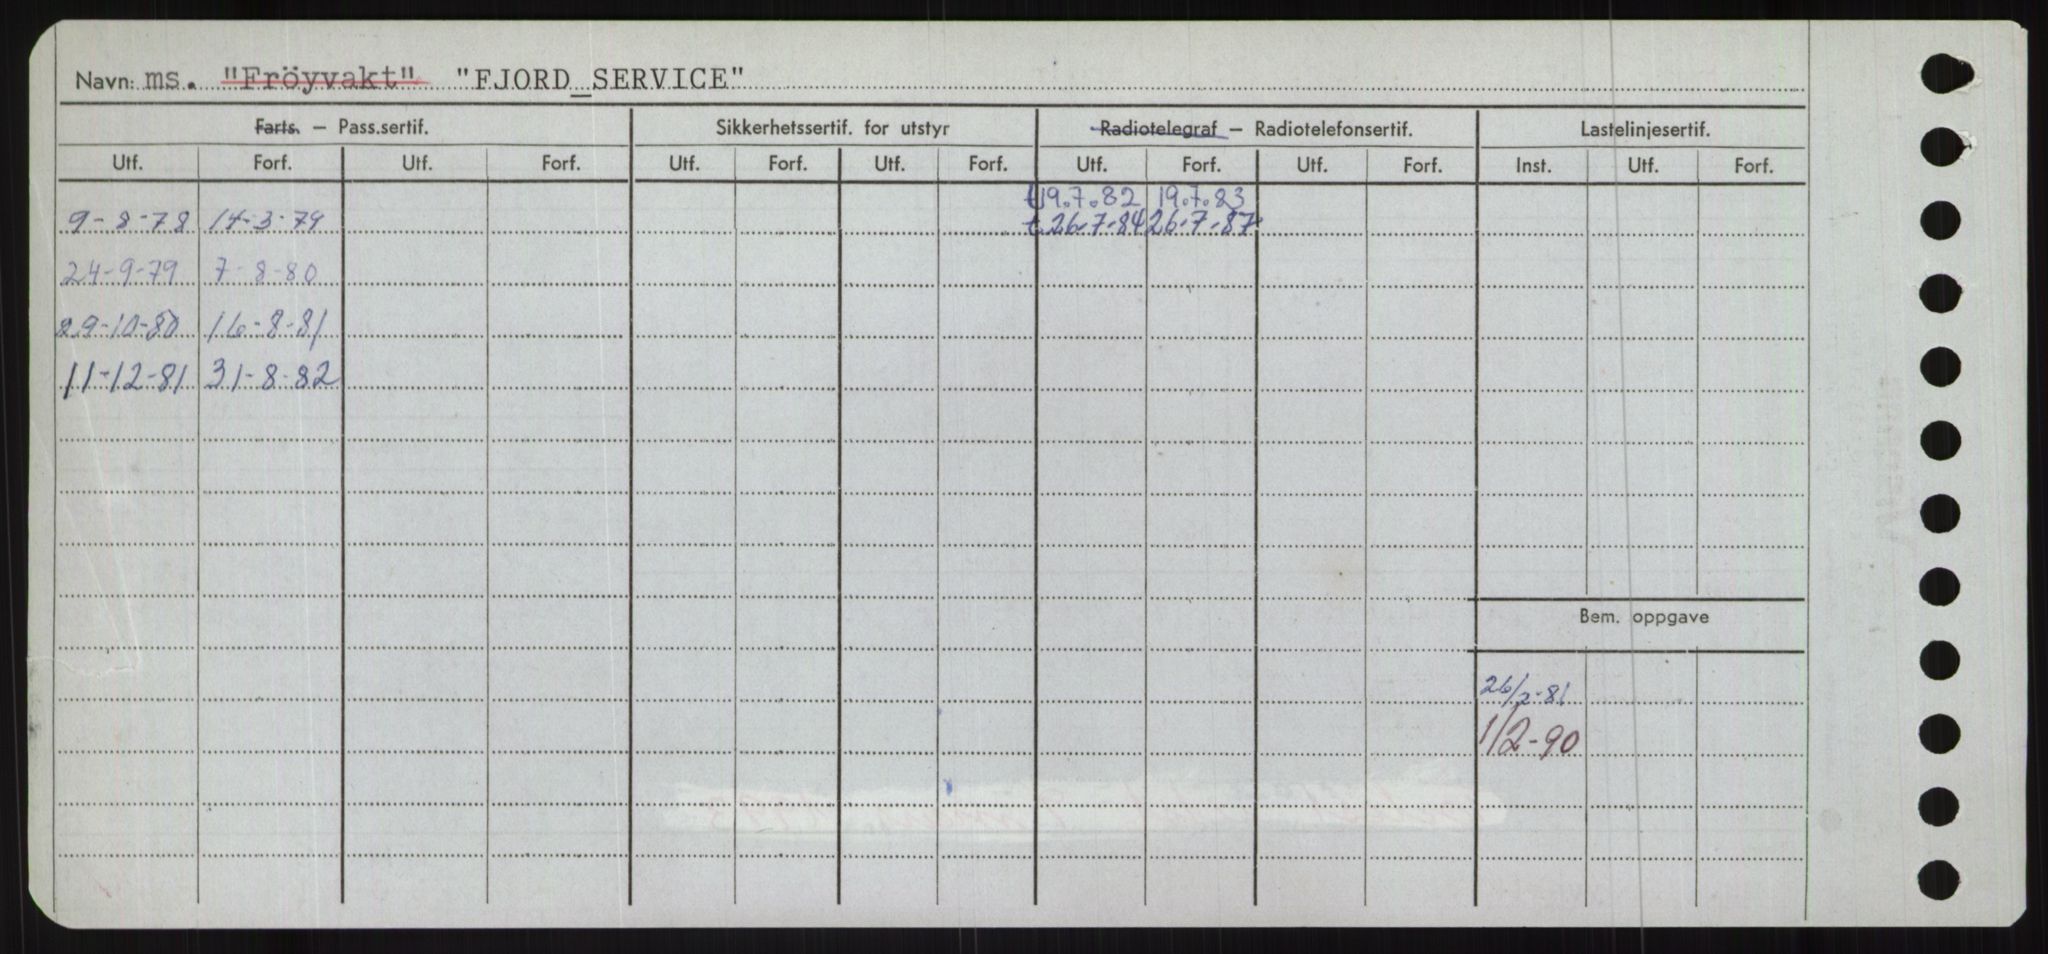 Navn: ms. "Fröyvakt" "FJORD SERVICE"
Farts. – Pass.sertif. Sikkerhetssertif. for utstyr Radiotelegraf – Radiotelefonsertif. Lastelinjesertif.
Utf. Forf. Utf. Forf. Utf. Forf. Utf. Forf. Utf. Forf. Utf. Forf. Inst. Utf. Forf.
t19.7.82 19.7.83
9-8-78 14-3-79 t.26-7-84 26-7-87
24-9-79 7-8-80
29-10-80 16-8-81
11-12-81 31-8-82
Bem. oppgave
26/2-81
1/2-90